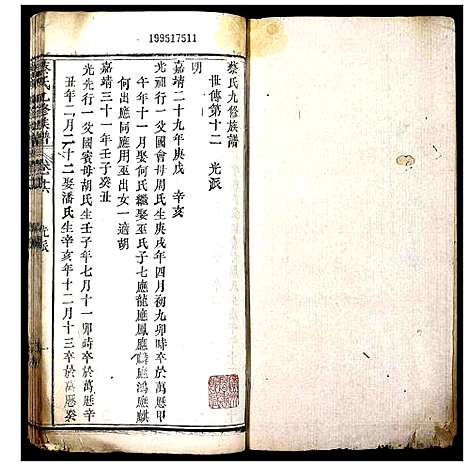 199517511
蔡氏九修族譜
世傳第十二　光派
明
嘉靖二十九年庚戌　辛亥
光祖行一父國會母周氏生庚戌年四月初九卯時卒於萬曆甲
午年十一月娶何氏繼娶巫氏子七應龍應鳳應麟應鴻應麒
何出應同應用巫出女一適胡
嘉靖三十一年壬子癸丑
光先行一父國賓母胡氏生壬子年七月十一卯時卒於萬曆辛
丑年二月二十二娶潘氏生辛亥年十二月十三卒於萬曆癸
蔡氏九修族譜
光派
一